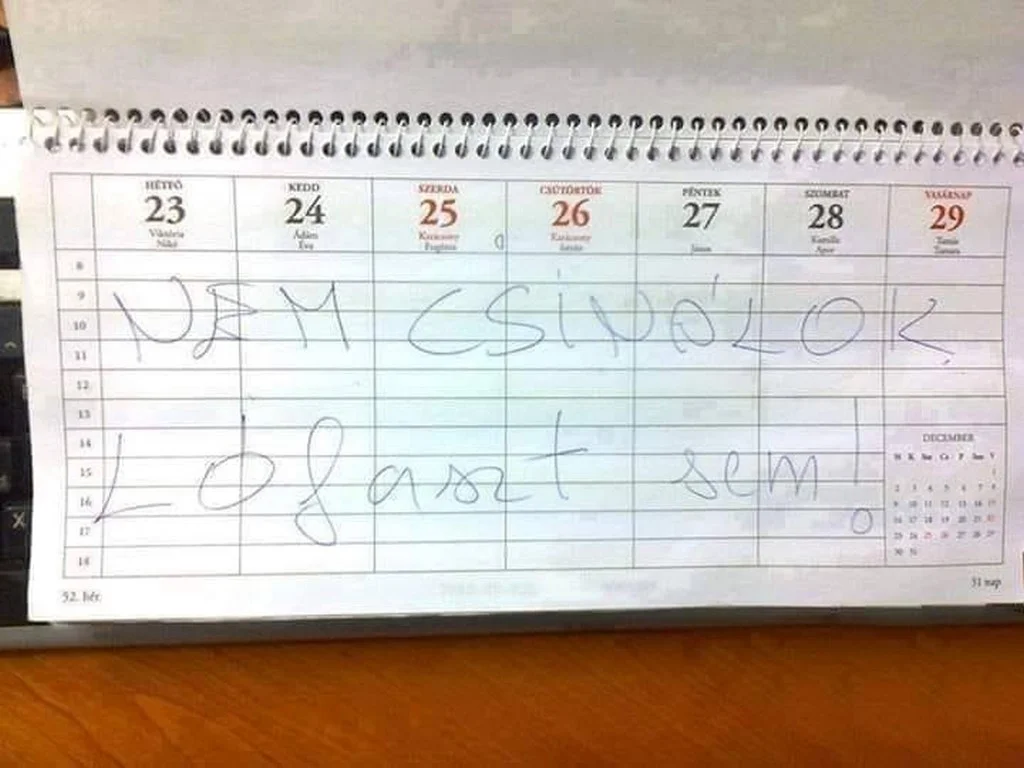 HÉTFŐ KEDD SZERDA CSÜTÖRTÖK PÉNTEK SZOMBAT VASÁRNAP
23 24 25 26 27 28 29
Viktória Ádám Karácsony Karácsony Kamilla Tamás
Niké Éva Eugénia István János Apor Tamara
8
9
NEM CSINÁLOK
10
11
12
13
14
LÓfaszt sem!
15
16
17
18
DECEMBER
H K Sze Cs P Szo V
1
2 3 4 5 6 7 8
9 10 11 12 13 14 15
16 17 18 19 20 21 22
23 24 25 26 27 28 29
30 31
52. hét
31 nap